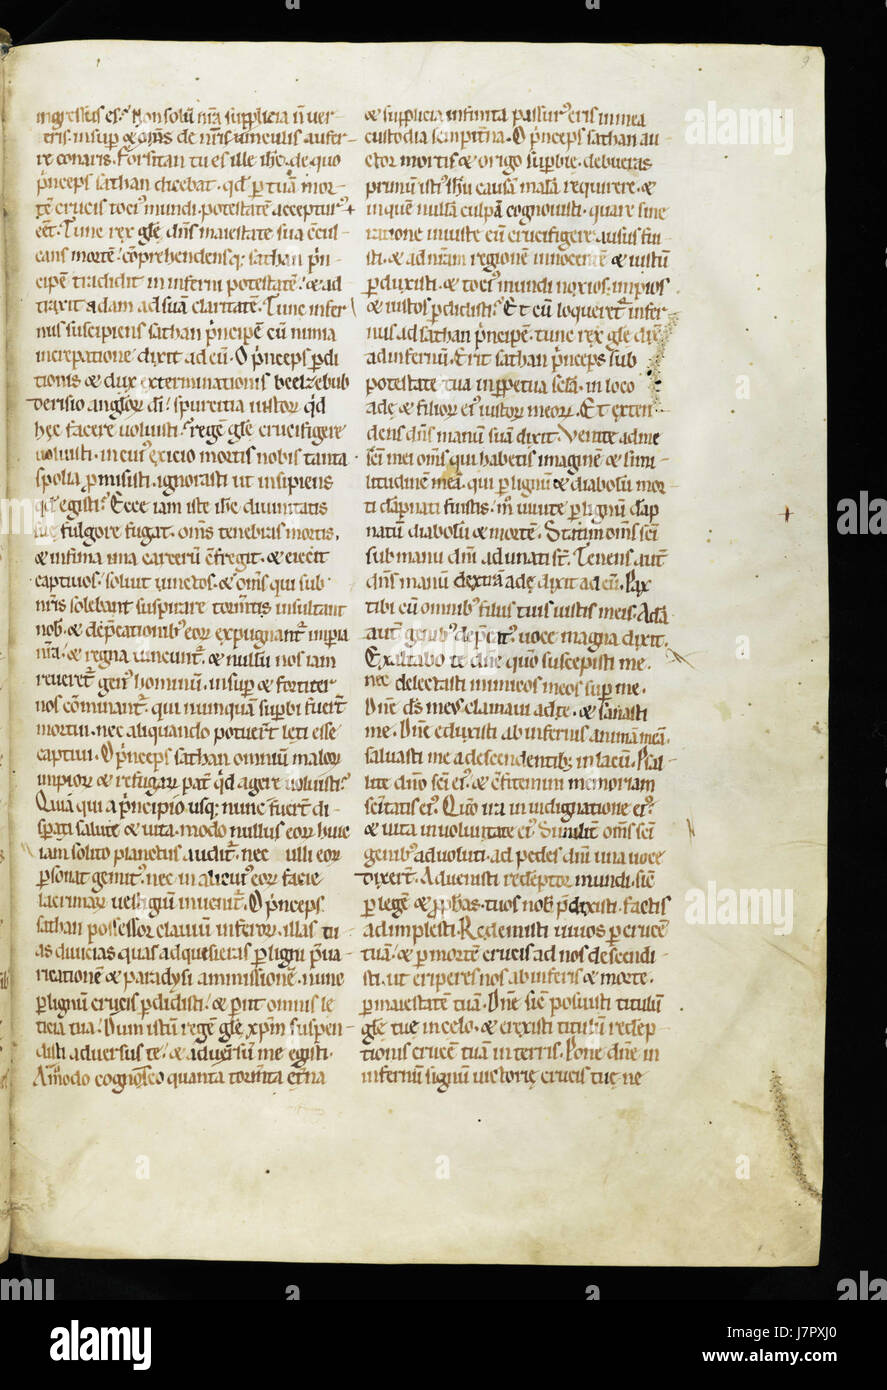 9
ingressus es? Non solū nr̄a supplicia ñ ver-
teris. insup & om̄s de nr̄is uinculis aufer-
re conaris. Forsitan tu es ille ih̄c. de quo
pͥnceps sathan dicebat. qđ p tuā mor-
tē crucis tociꝰ mundi potestatē accepturꝰ
eēt. Tunc rex glē dn̄s maiestate sua
cans mortē. cōprehendensq; sathan pͥn-
cipē tradidit inferni potestate. & ad
traxit adam ad suā claritatē. Tunc infer
nus suscipiens sathan pͥncipē cū nimia
increpatione dixit ad eū. O pͥnceps pdi
tionis & dux exterminationis beelzebub
derisio anglor̄ dī. spurcitia iustor̄ qđ
hęc facere uoluisti? regē glē crucifigere
uoluisti. in cuiꝰ exicio mortis nobis tanta
spolia pmisisti. ignorasti ut insipiens
qđ egisti? Ecce iam iste ih̄c diuinitatis
sue fulgore fugat. om̄s tenebras mortis.
& infima una carcerū cͦfregit. & eiecit
captiuos. soluit uinctos. & om̄s qui sub
nr̄is solebant suspirare torm̄tis insultant
nob̄. & dep̄cationibꝰ eor̄ expugnant̄ inpia
nr̄a. & regna uincunt̄. & nullū nos iam
reueret̄ genꝰ hominū. insup & fortiter
nos cōminant̄. qui nunquā supbi fuer̄t
mortui. nec aliquando potuer̄t leti esse
captiui. O pͥnceps sathan omnium malor̄
impior̄ & refugar̄ pat̄. qđ agere uoluisti?
Quia qui a pͥncipio usq; nunc fuer̄t di-
spati salute & uita. modo nullus eor̄ huic
iam solito planctus audit̄. nec ulli eor̄
psonat gemitꝰ. nec in alicuiꝰ eor̄ facie
lacrimar̄ uestigiū inuenit̄. O pͥnceps
sathan possessor clauiū inferor̄. illas tu-
as diuicias quas adquesieras p ligni pͥua-
ricationē & paradysi ammissionē. nunc
p lignū crucis pdidisti. & piit omnis le
ticia tua. Dum istū regē glē xp̄m suspen-
disti aduersus te. & aduersū me egisti.
Amodo cognosco quanta torm̄ta et̄na
& supplicia infinita passurꝰ eris in mea
custodia sempit̄na. O pͥnceps sathan au-
ctor mortis & origo supbie. debueras
primū istiꝰ ih̄u causā malā requirere. &
in quē nullā culpā cognouisti. quare sine
ratione iniuste eū crucifigere ausus fui-
sti. & ad nr̄am regionē innocentē & iustū
pduxisti. & tociꝰ mundi noxios. impios
& iustos pdidisti? Et cū loqueret̄ infer-
nus ad sathan pͥncipē. tunc rex glē dix̄
ad infernū. Erit sathan pͥnceps sub
potestate tua in ppetua sc̄la. in loco
adę & filior̄ eiꝰ iustor̄ meor̄. Et exten-
dens dn̄s manū suā dixit. Venite ad me
sc̄i mei om̄s qui habetis imaginē & simi-
litudinē meā. qui p lignū & diabolū mor-
ti dāpnati fuistis. m̊ uiuite p lignū dāp
natū diabolū & mortē. Statim om̄s sc̄i
sub manu dn̄i adunati st̄. Tenens aut̄
dn̄s manū dextrā adę dixit ad eū. Pax
tibi cū omnibꝰ filiis tuis iustis meis. Adā
aut̄ genibꝰ dep̄cat̄ꝰ. uoce magna dixit.
Exaltabo te dn̄e quō suscepisti me.
nec delectasti inimicos meos sup me.
Dn̄e ds̄ meꝰ clamaui ad te. & sanasti
me. Dn̄e eduxisti ab inferis animā meā.
saluasti me a descendentibꝰ in lacū. Psal-
lite dn̄o sc̄i eiꝰ. & cͦfitemini memoriam
sc̄itatis eiꝰ. Qūo ira in indignatione eiꝰ.
& uita in uoluntate eiꝰ. Similit̄ om̄s sc̄i
genibꝰ aduoluti. ad pedes dn̄i una uoce
dixer̄t. Aduenisti redēptor mundi. sic̄
p legē & pphas tuos nob̄ pdixisti. factis
adimplesti. Redemisti uiuos p crucē
tuā. & p mortē crucis ad nos descendi-
sti. ut eriperes nos ab inferis & morte.
p maiestatē tuā. Dn̄e sic̄ posuisti titulū
glē tuę in celo. & erexisti titulū redēp-
tionis crucē tuā in terris. Pone dn̄e in
infernū signū uictorię crucis tuę ne
alamy
a
alamy
Image ID: J7PXJ0
www.alamy.com